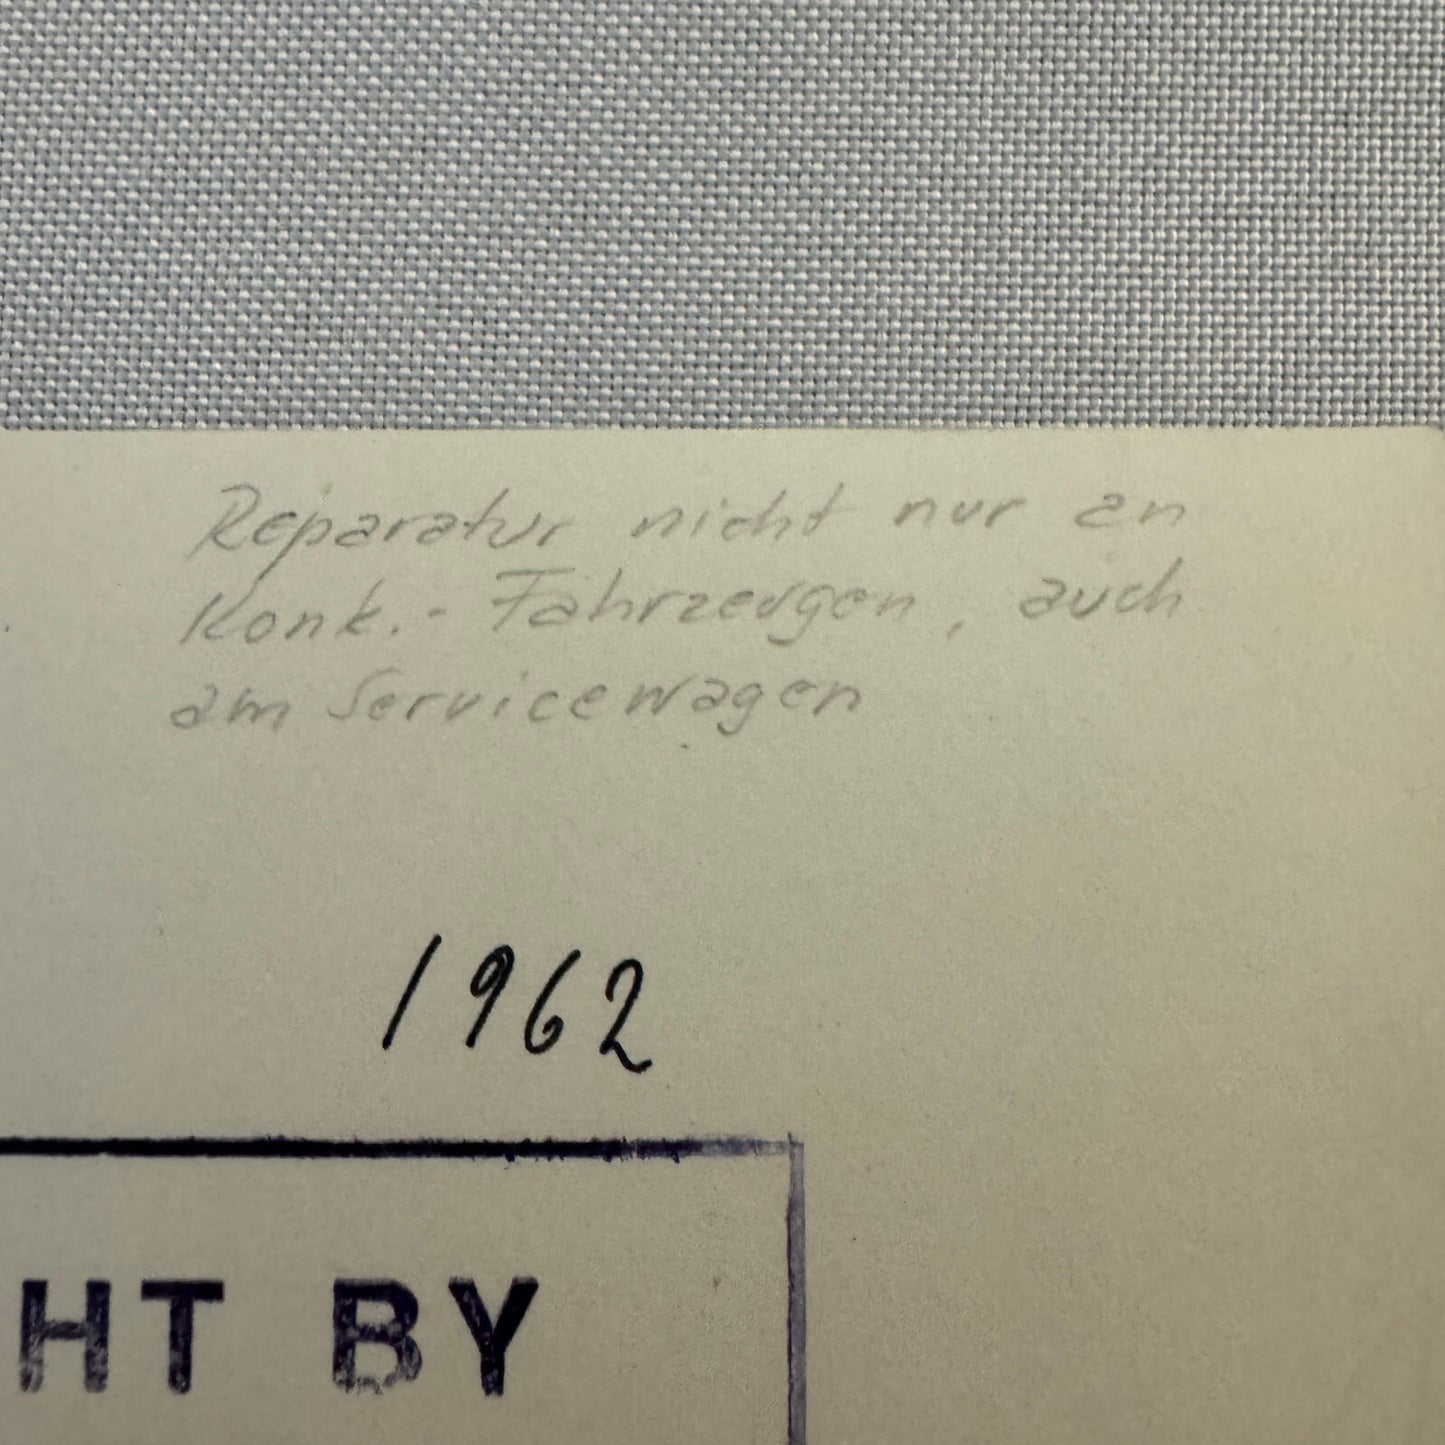 Reparatur nicht nur an
Konk.-Fahrzeugen, auch
am Servicewagen
1962
HT BY